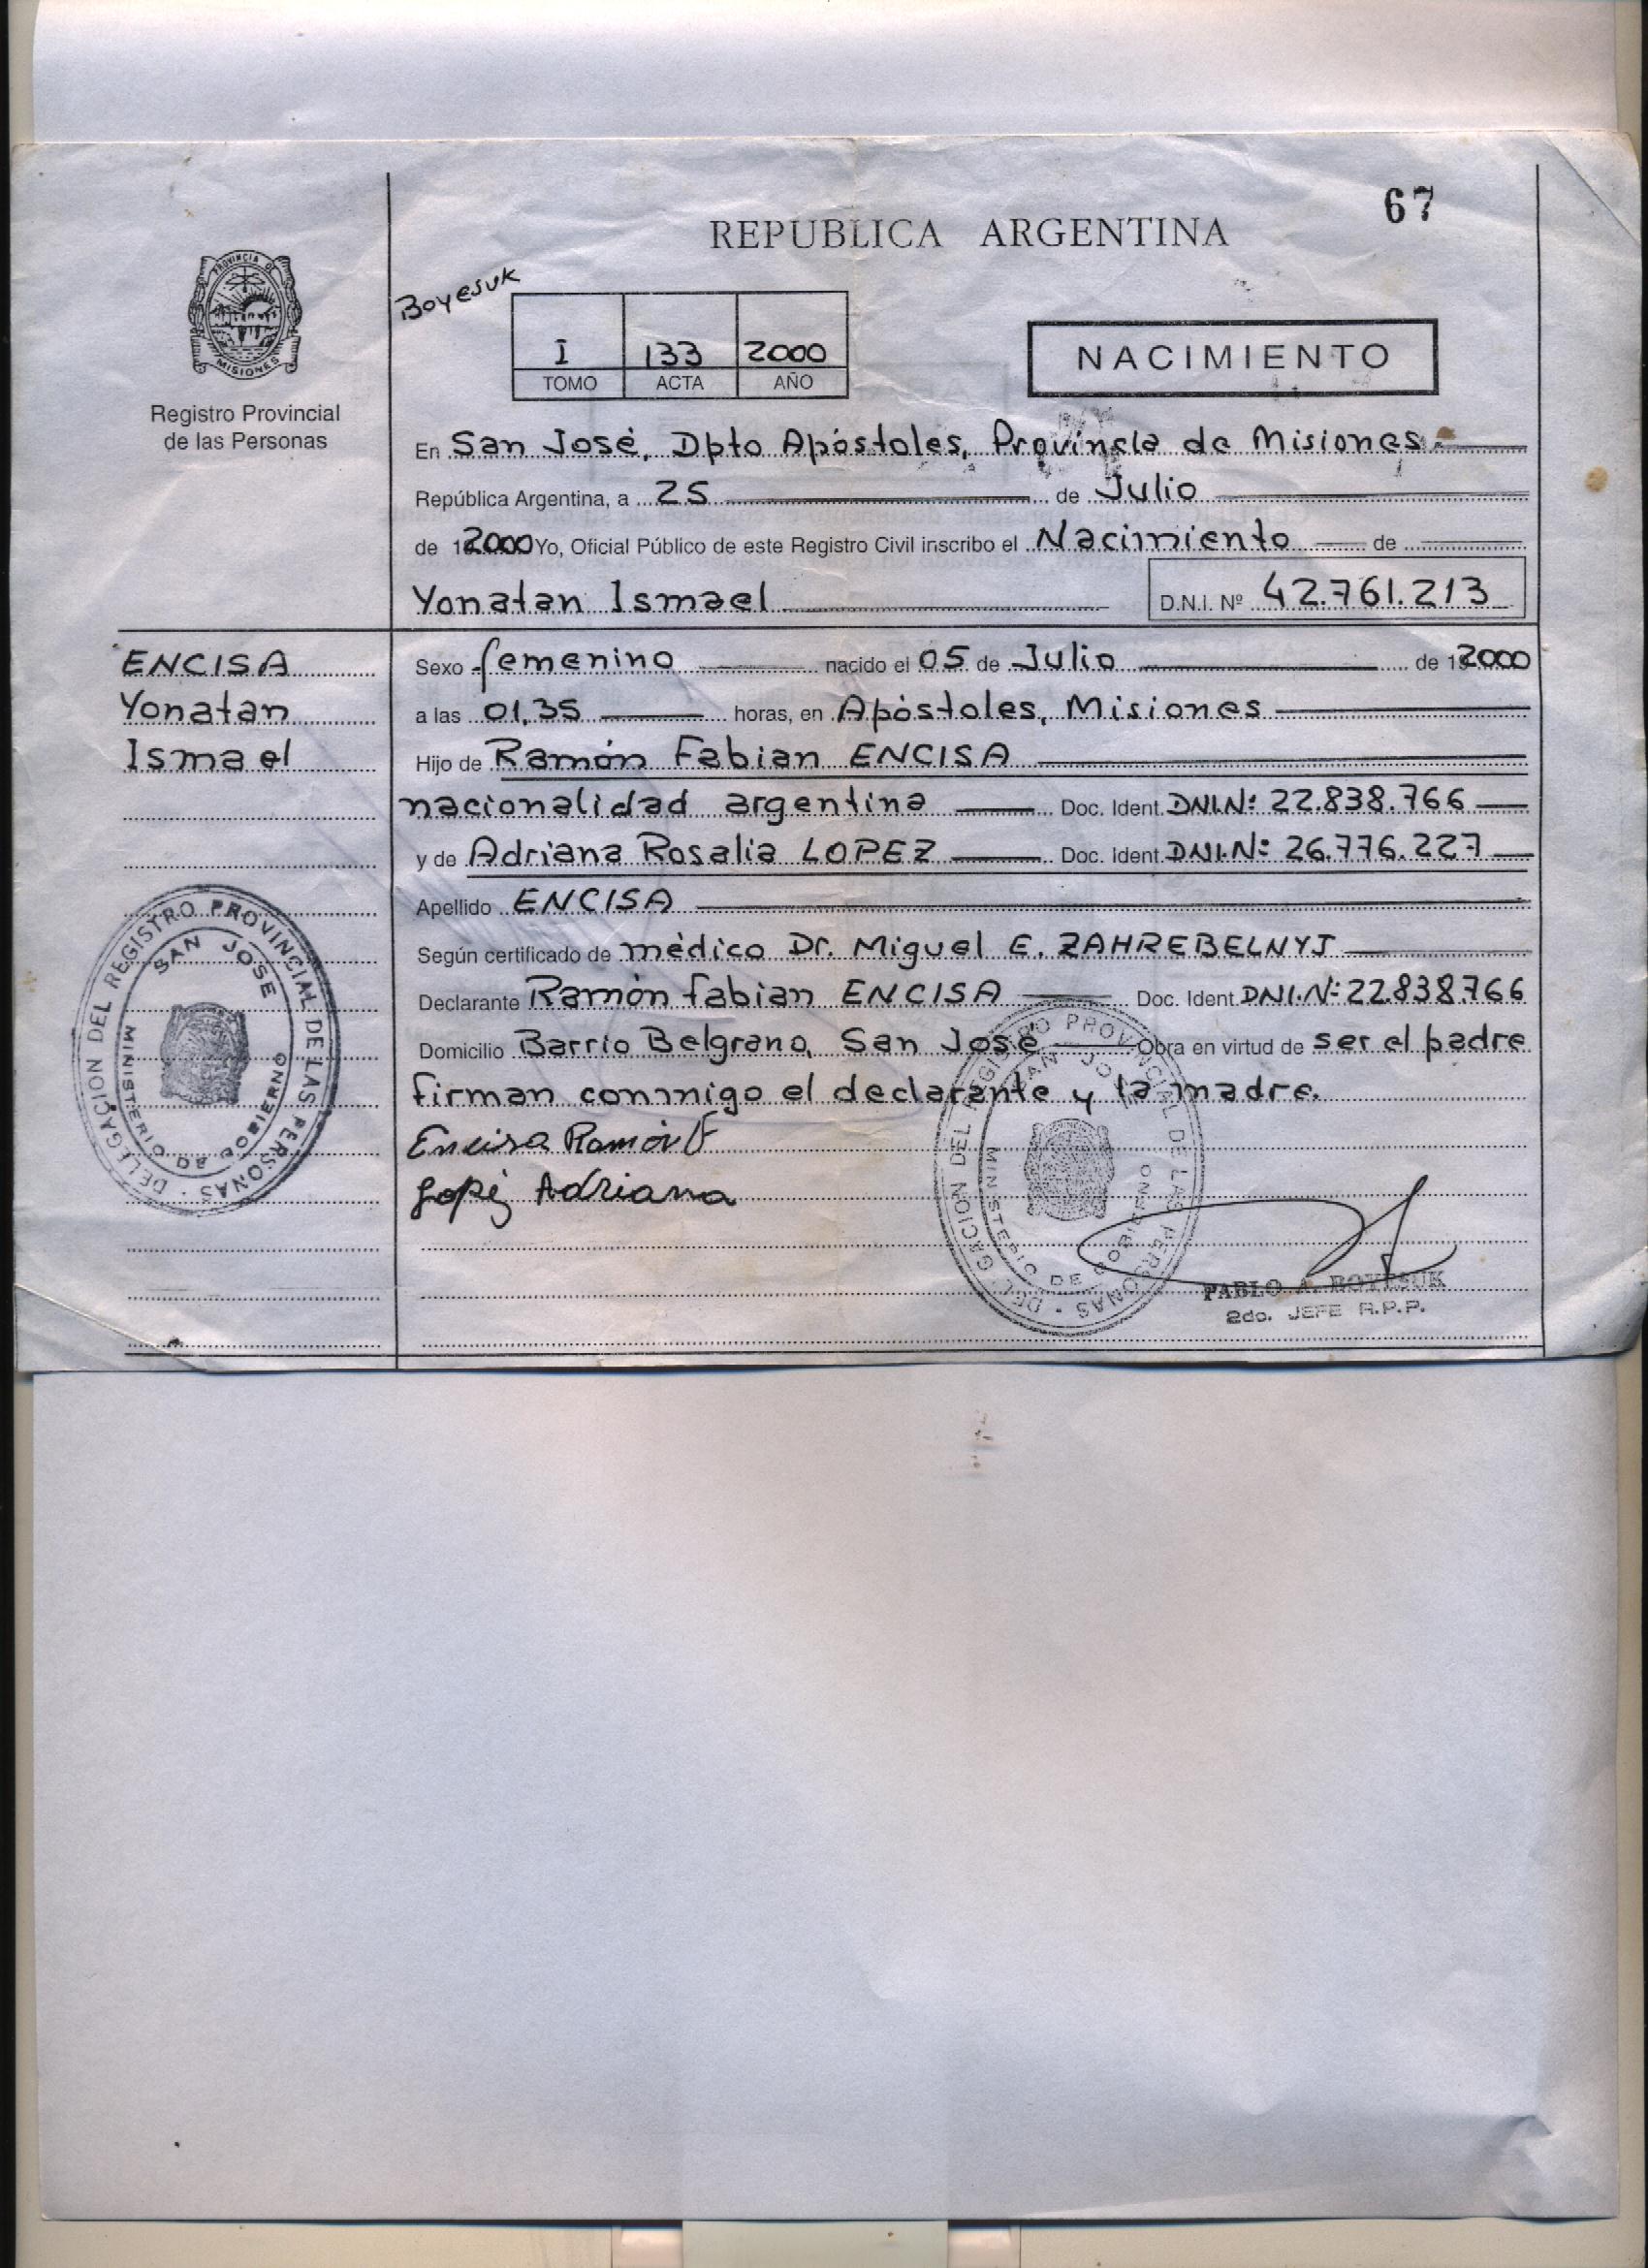 67
REPUBLICA ARGENTINA
PROVINCIA DE
MISIONES
Registro Provincial
de las Personas
Boyesuk
I 133 2000
TOMO ACTA AÑO
NACIMIENTO
En San José, Dpto Apóstoles, Provincia de Misiones.
República Argentina, a 25 de Julio
de 2000 Yo, Oficial Público de este Registro Civil inscribo el Nacimiento de
Yonatan Ismael D.N.I. Nº 42.761.213
ENCISA
Yonatan
Ismael
Sexo femenino nacido el 05 de Julio de 2000
a las 01,35 horas, en Apóstoles, Misiones
Hijo de Ramón Fabian ENCISA
nacionalidad argentina Doc. Ident. DNI.Nº 22.838.766
y de Adriana Rosalia LOPEZ Doc. Ident. DNI.Nº 26.776.227
Apellido ENCISA
Según certificado de médico Dr. Miguel E. ZAHREBELNYJ
Declarante Ramón fabian ENCISA Doc. Ident. DNI.Nº 22.838.766
Domicilio Barrio Belgrano, San José Obra en virtud de ser el padre
firman conmigo el declarante y la madre.
Encisa Ramón F
Lopez Adriana
DELEGACION DEL REGISTRO PROVINCIAL DE LAS PERSONAS
SAN JOSE
MINISTERIO DE GOBIERNO
DELEGACION DEL REGISTRO PROVINCIAL DE LAS PERSONAS
SAN JOSE
MINISTERIO DE GOBIERNO
PABLO A. BOYESUK
2do. JEFE R.P.P.